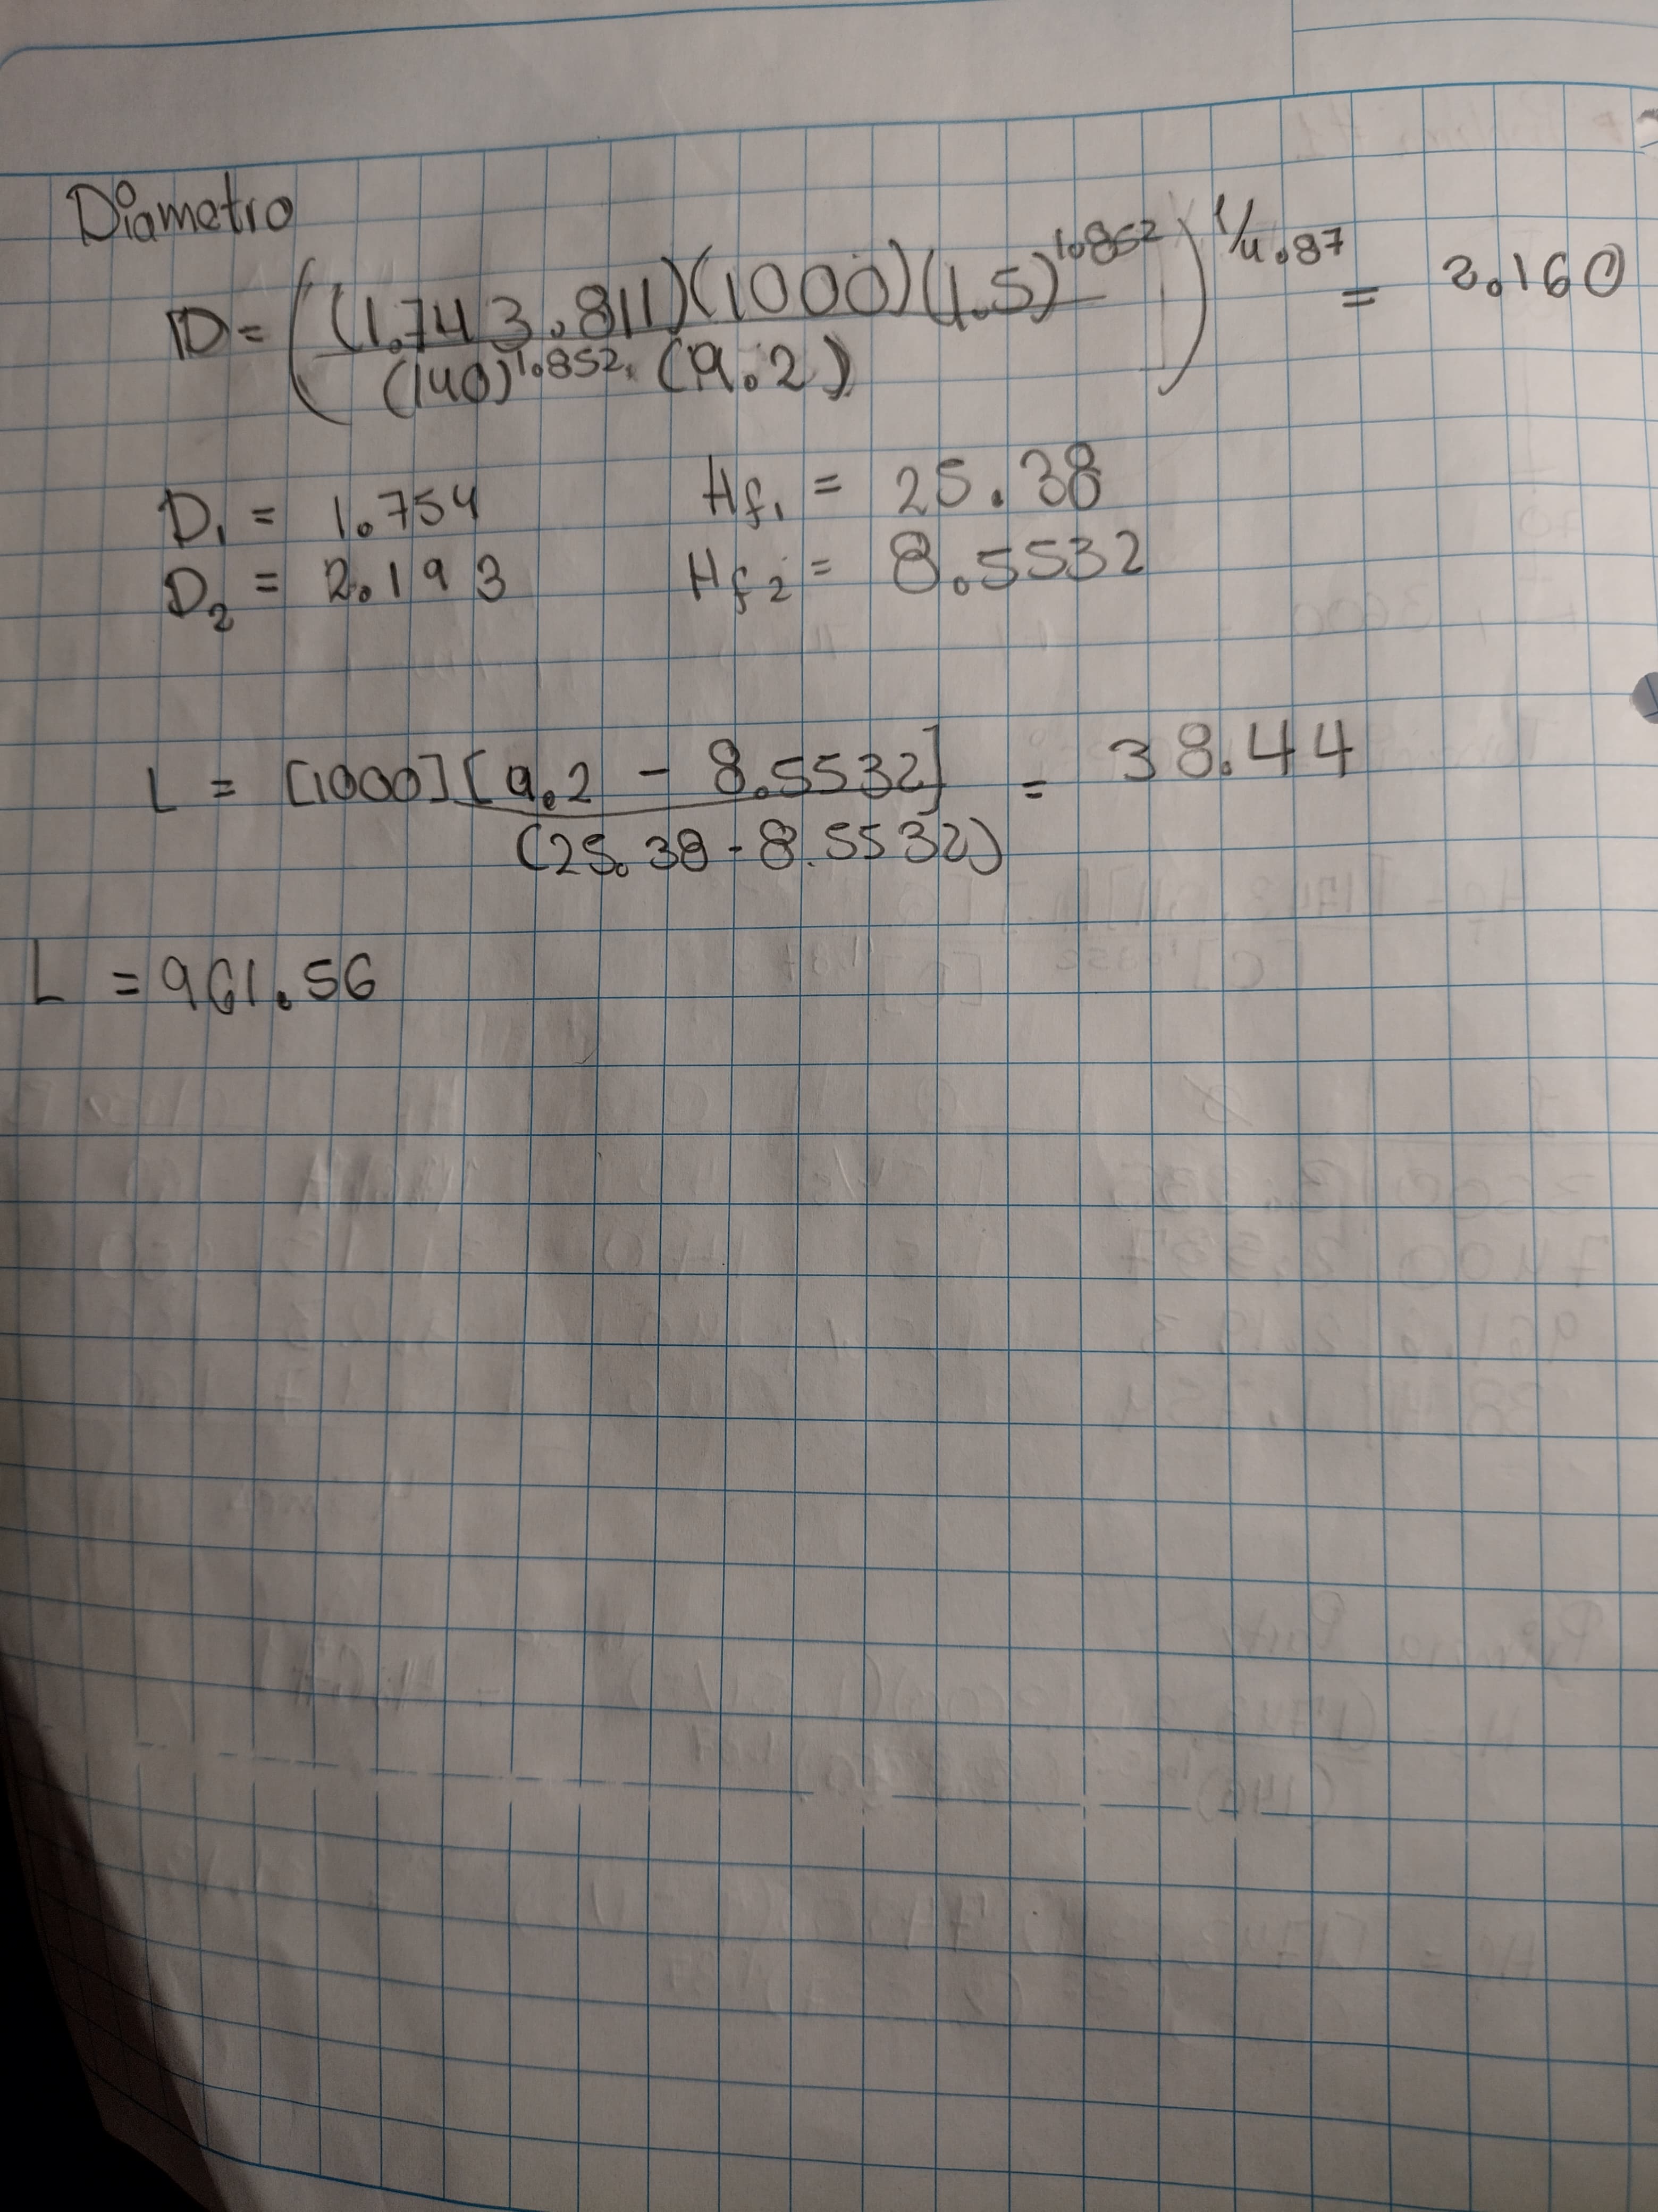 Diametro
D = ((1.743.811)(1000)(1.5)^1.852 / (140)^1.852. (9.2))^1/4.87 = 2.160
D₁ = 1.754 Hf₁ = 25.38
D₂ = 2.193 Hf₂ = 8.5532
L = [1000][9.2 - 8.5532] / (25.38 - 8.5532) = 38.44
L = 961.56